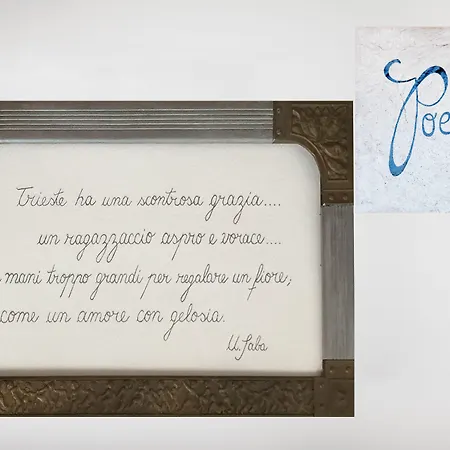 Trieste ha una scontrosa grazia....
un ragazzaccio aspro e vorace....
mani troppo grandi per regalare un fiore;
come un amore con gelosia.
U. Saba
Poe